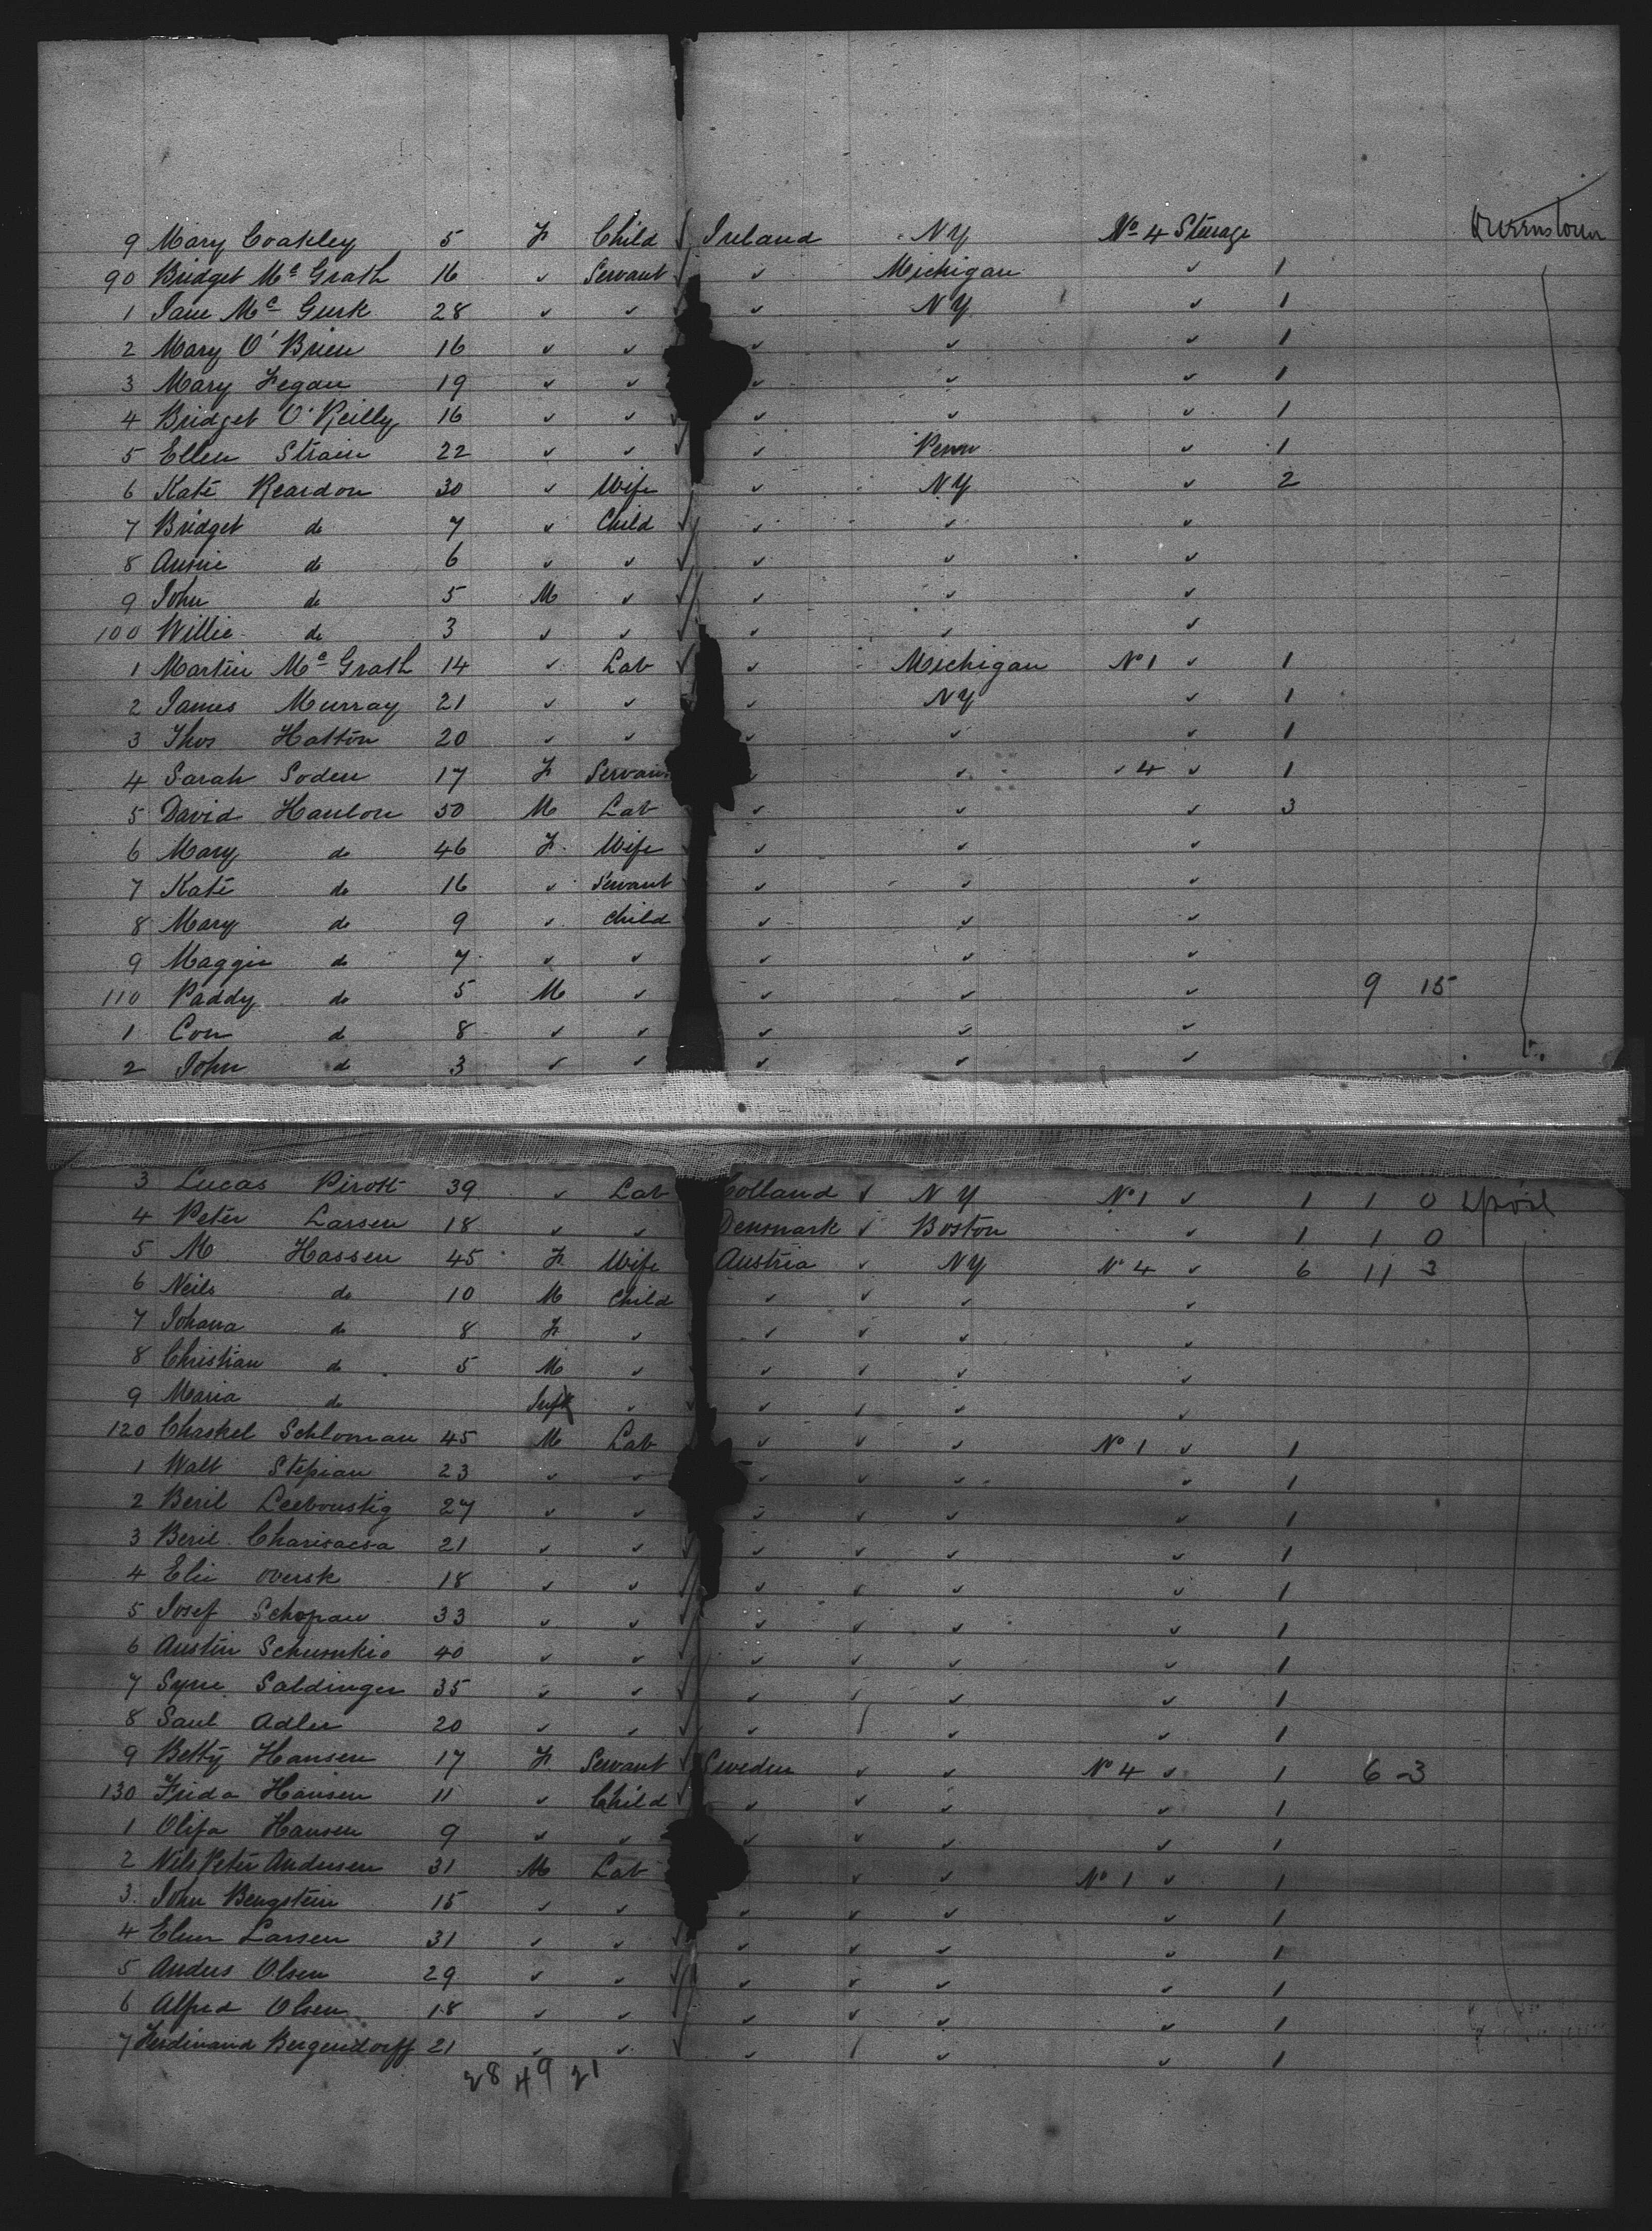 9 Mary Coakley 5 F Child ✓ Ireland NY No 4 Steerage Queenstown
90 Bridget Mc Grath 16 ✓ Servant ✓ ✓ Michigan ✓ 1
1 Jane Mc Gurk 28 ✓ ✓ ✓ NY ✓ 1
2 Mary O'Brien 16 ✓ ✓ ✓ ✓ ✓ 1
3 Mary Fegan 19 ✓ ✓ ✓ ✓ ✓ 1
4 Bridget O'Reilly 16 ✓ ✓ ✓ ✓ ✓ ✓ 1
5 Ellen Strain 22 ✓ ✓ ✓ ✓ Penn ✓ 1
6 Kate Reardon 30 ✓ Wife ✓ ✓ NY ✓ 2
7 Bridget do 7 ✓ Child ✓ ✓ ✓ ✓
8 Annie do 6 ✓ ✓ ✓ ✓ ✓ ✓
9 John do 5 M ✓ ✓ ✓ ✓ ✓
100 Willie do 3 ✓ ✓ ✓ ✓ ✓ ✓
1 Martin Mc Grath 14 ✓ Lab ✓ ✓ Michigan No 1 ✓ 1
2 James Murray 21 ✓ ✓ ✓ NY ✓ 1
3 Thos Hatton 20 ✓ ✓ ✓ ✓ ✓ 1
4 Sarah Soden 17 F Servant ✓ ✓ ✓ 4 ✓ 1
5 David Hanlon 50 M Lab ✓ ✓ ✓ 3
6 Mary do 46 F Wife ✓ ✓ ✓
7 Kate do 16 ✓ Servant ✓ ✓ ✓
8 Mary do 9 ✓ child ✓ ✓ ✓
9 Maggie do 7 ✓ ✓ ✓ ✓ ✓
110 Paddy do 5 M ✓ ✓ ✓ ✓ 9 15
1 Con do 8 ✓ ✓ ✓ ✓ ✓
2 John do 3 ✓ ✓ ✓ ✓ ✓
3 Lucas Pirott 39 ✓ Lab Holland ✓ NY No 1 ✓ 1 1 0 L'pool
4 Peter Larsen 18 ✓ ✓ Denmark ✓ Boston ✓ 1 1 0
5 M Hassen 45 F Wife Austria ✓ NY No 4 ✓ 6 11 3
6 Neils do 10 M Child ✓ ✓ ✓ ✓
7 Johana do 8 F ✓ ✓ ✓ ✓ ✓
8 Christian do 5 M ✓ ✓ ✓ ✓ ✓
9 Maria do Inft ✓ ✓ ✓ ✓ ✓
120 Chaskel Schloman 45 M Lab ✓ ✓ ✓ No 1 ✓ 1
1 Walt Stepian 23 ✓ ✓ ✓ ✓ ✓ ✓ 1
2 Beril Leeboustig 27 ✓ ✓ ✓ ✓ ✓ ✓ 1
3 Beril Charisacsa 21 ✓ ✓ ✓ ✓ ✓ ✓ 1
4 Elie oversk 18 ✓ ✓ ✓ ✓ ✓ ✓ ✓ 1
5 Josef Schopan 33 ✓ ✓ ✓ ✓ ✓ ✓ ✓ 1
6 Austin Schumkio 40 ✓ ✓ ✓ ✓ ✓ ✓ ✓ 1
7 Syne Saldinger 35 ✓ ✓ ✓ ✓ ✓ ✓ ✓ 1
8 Saul Adler 20 ✓ ✓ ✓ ✓ ✓ ✓ ✓ 1
9 Betty Hansen 17 F Servant Sweden ✓ ✓ No 4 ✓ 1 6 3
130 Frida Hansen 11 ✓ Child ✓ ✓ ✓ ✓ ✓ 1
1 Olifa Hansen 9 ✓ ✓ ✓ ✓ ✓ ✓ 1
2 Nils Peter Andersen 31 M Lab ✓ ✓ No 1 ✓ 1
3 John Bengstein 15 ✓ ✓ ✓ ✓ ✓ ✓ 1
4 Elmer Larsen 31 ✓ ✓ ✓ ✓ ✓ ✓ ✓ 1
5 Anders Olsen 29 ✓ ✓ ✓ ✓ ✓ ✓ ✓ 1
6 Alfred Olsen 18 ✓ ✓ ✓ ✓ ✓ ✓ ✓ 1
7 Ferdinand Bergendorff 21 ✓ ✓ ✓ ✓ ✓ ✓ ✓ 1
28 49 21